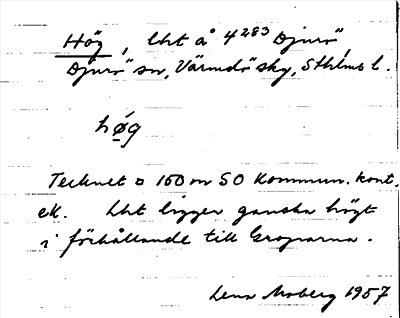 Hög, lht å 4²⁸³ Djurö
Djurö sn, Värmdö skg, Sthlms l.
høg
Tecknet ¤ 150 m SO Kommun. kont.
ek. Lht ligger ganska högt
i förhållande till Groparna.
Lena Moberg 1957